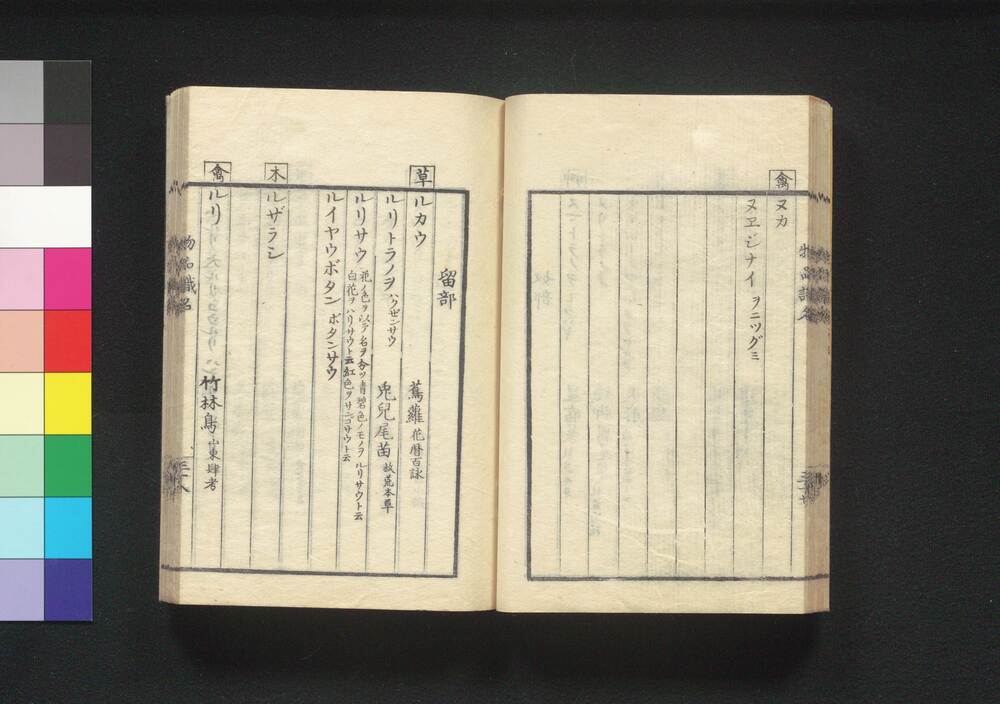 禽
ヌカ
ヌヱジナイ ヲニツグミ
留部
草
ルカウ 蔦蘿 花暦百詠
ルリトラノヲ ハクゼンサウ 兎兒尾苗 救荒本草
ルリサウ 花ノ色ヲ以テ名ヲ分ツ青碧色ノモノヲルリサウト云
白花ヲハリサウト云紅色ヲサンゴサウト云
ルイヤウボタン ボタンサウ
木
ルザラン
禽
ルリ 竹林鳥 山東肆考
物品識名
三十八